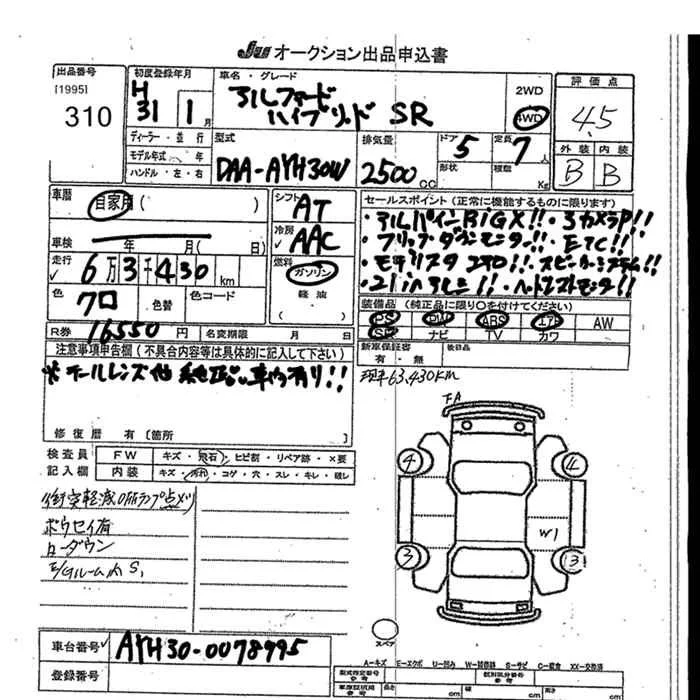 JU オークション出品申込書
出品番号
[1995]
310
初度登録年月
H
31 1月
車名・グレード
アルファード
ハイブリッド SR
2WD
4WD
評価点
4.5
外装 内装
B B
ディーラー・並行
モデル年式 年
ハンドル・左・右
型式
DAA-AYH30W
排気量
2500CC
ドア
5
形状
定員
7人
積載
Kg
車歴
自家用( )
車検 年 月( 日)
走行
6万3千430km
色
クロ
色替
色コード
R券 16550円
名変期限 月 日
シフト
AT
冷房
AAC
燃料
ガソリン
軽油
( )
セールスポイント(正常に機能するものに限ります)
・アルパインBiGX!!・3カメラP!!
・フリップダウンモニター!!・ETC!!
・モデリスタエアロ!!・スピーカーシステム!!
・21inアルミ!!・ヘッドレストモニター!!
装備品(純正品に限り〇を付けてください)
PS PW ABS エアB AW
SR ナビ TV カワ
新車保証書
有・無
後日品
注意事項申告欄(不具合内容等は具体的に記入して下さい)
※テールレンズ他純正品車内有り!!
現車63,430km
修復歴 有〔箇所
検査員
記入欄
FW キズ・飛石・ヒビ割・リペア跡・×要
内装 キズ・汚れ・コゲ・穴・スレ・キレ・破レ
ボウセイ有
ローダウン
E/GルームムS1
FA
4
4
W1
3
3
スペア
車台番号 AYH30-0078995
登録番号
A-キズ E-エクボ U-凹み W-補修跡 S-サビ C-腐食 XX-交換済
型式指定番号
参考
類別区分番号
参考
長さ cm 幅 cm 高さ cm